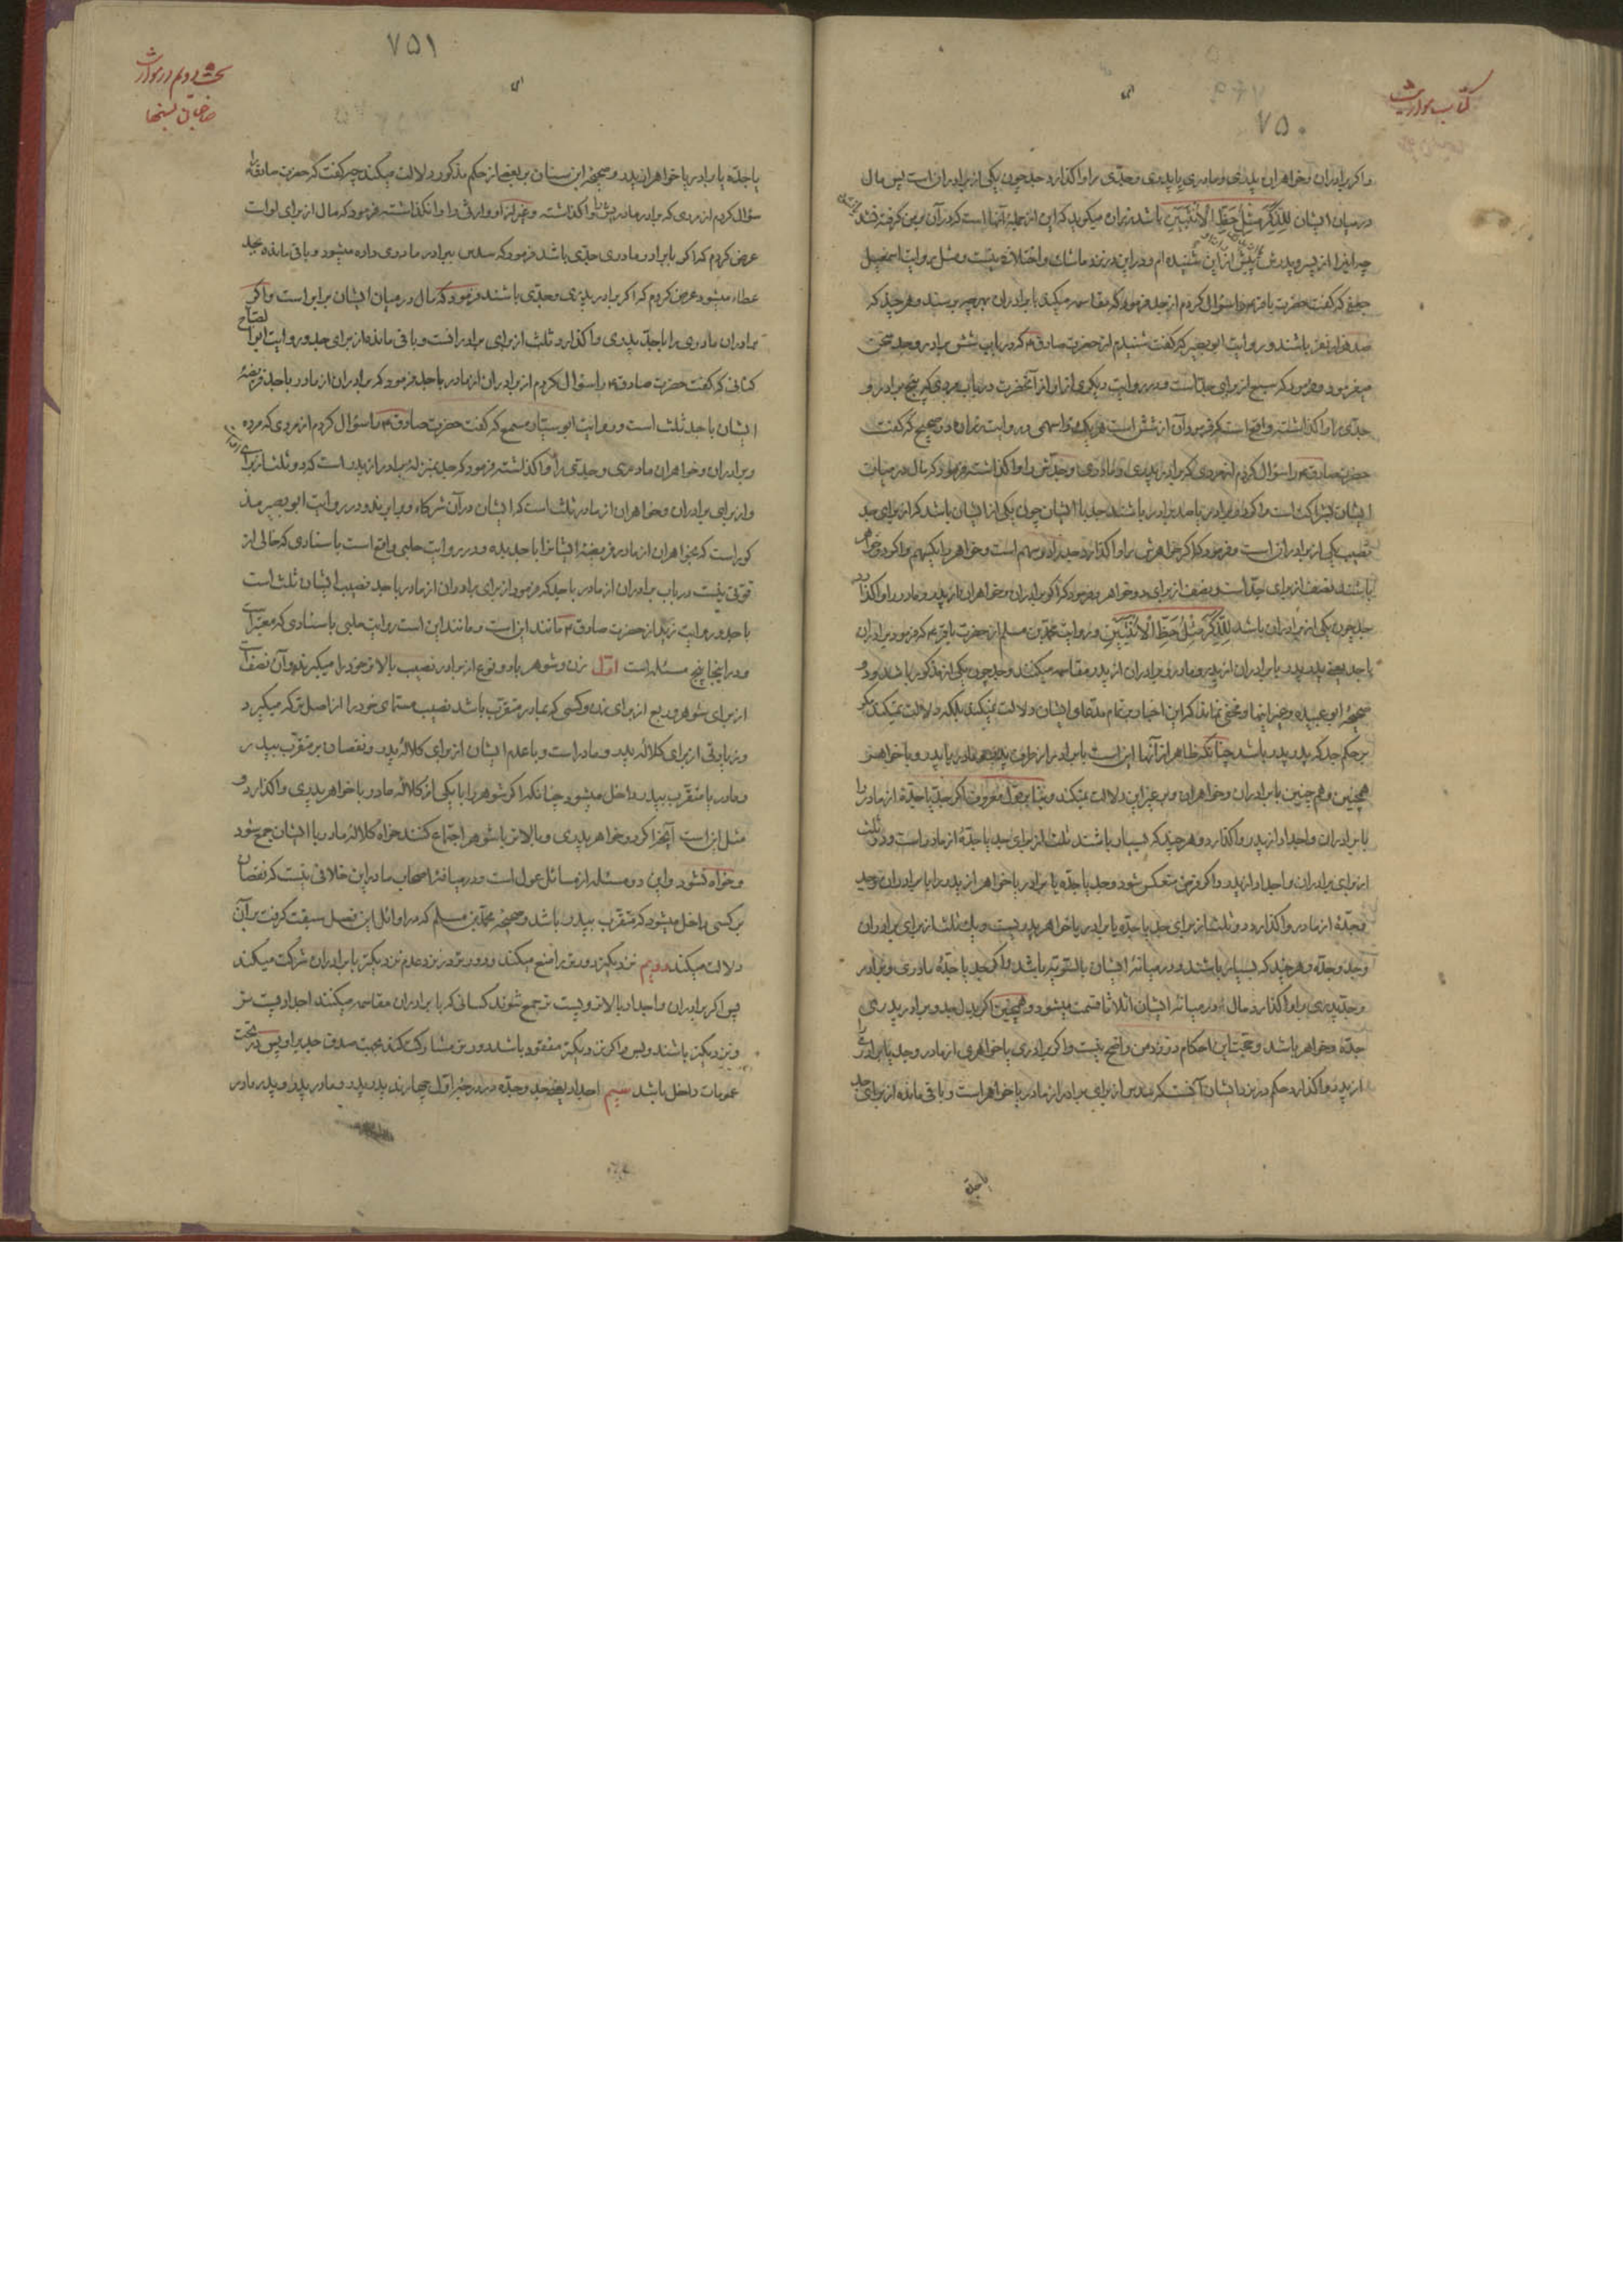 کتاب مواریث
۷۵۰
واکر برادران وخواهران پدری ومادری یا پدری وجدّی را واکذارد جد چون یکی از برادران است پس مال
در میان ایشان لِلذَّکَرِ مِثْلُ حَظِّ الْأُنْثَیَیْنِ باشد زنان میکوید که این از جملهٔ آنها است که در آن بر من کرفته شد
چه این را از پسر و پدرش پیش از این شنیده ام ودر این در نزد ما شک واختلاف نیست ومثل روایت اسمعیل
جعفی که کفت حضرت باقر ع را سؤال کردم از جد فرمود که مقاسمه میکند با برادران بهر چه برسند وهر چند که
صد هزار نفر باشند و روایت ابو بصیر که کفت شنیدم از حضرت صادق ع که در باب شش برادر وجد سخن
میفرمود وفرمود که سبع از برای جد است ودر روایت دیکری از او از آنحضرت در باب مردی که پنج برادر و
جدّی را واکذاشته واقع است که فرمود آن از شش است هر یک را سهمی و روایت زراره در صحیح که کفت
حضرت صادق ع را سؤال کردم از مردی که برادر پدری و مادری وجدّش را واکذاشته فرمود که مال در میان
ایشان بشراکت است واکر دو برادر یا صد برادر باشند جد با ایشان چون یکی از ایشان باشد که از برای جد
نصیب یکی از برادران است وفرمود که اکر خواهرش را واکذارد جد را دو سهم است وخواهر را یکسهم واکر دو خواهر
باشند نصف از برای جدّ است ونصف از برای دو خواهر وفرمود که اکر برادران وخواهران از پدر ومادر را واکذارد
جد چون یکی از برادران باشد لِلذَّکَرِ مِثْلُ حَظِّ الْأُنْثَیَیْنِ و روایت محمّد بن مسلم از حضرت باقر ع که فرمود برادران
با جد یعنی پدر پدر با برادران از پدر و مادر و برادران از پدر مقاسمه میکنند وجد چون یکی از مذکور باشد و
صحیحهٔ ابو عبیده وغیر اینها ومخفی نماند که این اخبار بر تمام مدّعای ایشان دلالت نمیکند بلکه دلالت نمیکند مکر
بر حکم جد که پدر پدر باشد چنانکه ظاهر از آنها این است با برادر از طرف پدر ومادر یا پدر و با خواهر
همچنین وهم چنین با برادران وخواهران وبر غیر این دلالت نمیکند وبنا بر قول معروف اکر جد یا جدّه از مادر را
با برادران واجداد از پدر واکذارد وهر چند که بسیار باشند ثلث از برای جد یا جدّهٔ از مادر است ودو ثلث
از برای برادران واجداد از پدر واکر فرض منعکس شود وجد یا جدّه با برادر یا خواهر از پدر را با برادران وجد
وجدّهٔ از مادر واکذارد دو ثلث از برای جد یا جدّه با برادر یا خواهر پدریست ویک ثلث از برای برادران
وجد وجدّه وهر چند که بسیار باشند ودر میانهٔ ایشان بالسّویّه باشد واکر جد یا جدّهٔ مادری وبرادر
وجد پدری را واکذارد مال در میانهٔ ایشان اثلاثا قسمت میشود وهمچنین اکر بدل جد وبرادر پدری
جدّه وخواهر باشد وحجّت این احکام در نزد من واضح نیست واکر برادری یا خواهری از مادر وجد یا برادری را
از پدر واکذارد حکم در نزد ایشان آنست که سدس از برای برادر از مادر یا خواهر است وباقی مانده از برای جد
یا جدّه
۷۵۱
بحث دویم در مواریث
صاحبان نسبها
یا جدّه یا برادر یا خواهران پدر وصحیحهٔ ابن سنان بر بعض از حکم مذکور دلالت میکند چه کفت که حضرت صادق ع را
سؤال کردم از مردی که برادر مادریش را واکذاشته وغیر از او وارثی را وانکذاشته فرمود که مال از برای اوست
عرض کردم که اکر با برادر مادری جدّی باشد فرمود که سدس ببرادر مادری داده میشود و باقی مانده بجد
عطاء میشود عرض کردم که اکر برادر پدری وجدّی باشند فرمود که مال در میان ایشان برابر است واکر
برادران مادری را با جدّ پدری واکذارد ثلث از برای برادرانست وباقی مانده از برای جد و روایت ابو الصّباح
کنانی که کفت حضرت صادق ع را سؤال کردم از برادران از مادر با جد فرمود که برادران از مادر با جد فریضهٔ
ایشان با جد ثلث است و روایت ابو سیّار مسمع که کفت حضرت صادق ع را سؤال کردم از مردی که مرده
وبرادران وخواهران مادری وجدّی را واکذاشته فرمود که جد بمنزلهٔ برادر از پدر است که دو ثلث از برای اوست
واز برای برادران وخواهران از مادر ثلث است که ایشان در آن شرکاء وبرابرند ودر روایت ابو بصیر مذ
کور است که بخواهران از مادر فریضهٔ ایشانرا با جد بده ودر روایت حلبی واقع است باسنادی که خالی از
قوّتی نیست در باب برادران از مادر با جد که فرمود از برای برادران از مادر با جد نصیب ایشان ثلث است
با جد و روایت زید از حضرت صادق ع مانند این است ومانند این است روایت حلبی باسنادی که معتبر است
ودر اینجا پنج مسئله است اوّل زن وشوهر با دو نوع از برادر نصیب بالاتر خود را میکیرند وآن نصف است
از برای شوهر و ربع از برای زن وکسی که بمادر متقرّب باشد نصیب مسمّای خود را از اصل ترکه میکیرد
وزیادتی از برای کلالهٔ پدر ومادر است وبا عدم ایشان از برای کلالهٔ پدر ونقصان بر متقرّب بپدر
ومادر یا متقرّب بپدر داخل میشود چنانکه اکر شوهر را با یکی از کلالهٔ مادر با خواهر پدری واکذارد و
مثل این است آنجا که دو خواهر پدری و بالاتر با شوهر اجتماع کنند خواه کلالهٔ مادر با ایشان جمع شود
وخواه نشود واین دو مسئله از مسائل عول است ودر میانهٔ اصحاب ما در این خلافی نیست که نقصان
بر کسی داخل میشود که متقرّب بپدر باشد وصحیحهٔ محمّد بن مسلم که در اوائل این فصل سبقت کرفت بر آن
دلالت میکند دویم نزدیکتر دورتر را منع میکند ودورتر در نزد عدم نزدیکتر با برادران شرکت میکند
پس اکر برادران واجداد بالاتر وپست تر جمع شوند کسانی که با برادران مقاسمه میکنند اجداد پست تر
ونزدیکتر باشند وبس واکر نزدیکتر مفقود باشد دورتر مشارکت کند بجهت صدق جد بر او پس در تحت
عمومات داخل باشد سیم اجداد یعنی جد وجدّه در درجهٔ اوّل چهارند پدر پدر ومادر پدر وپدر مادر